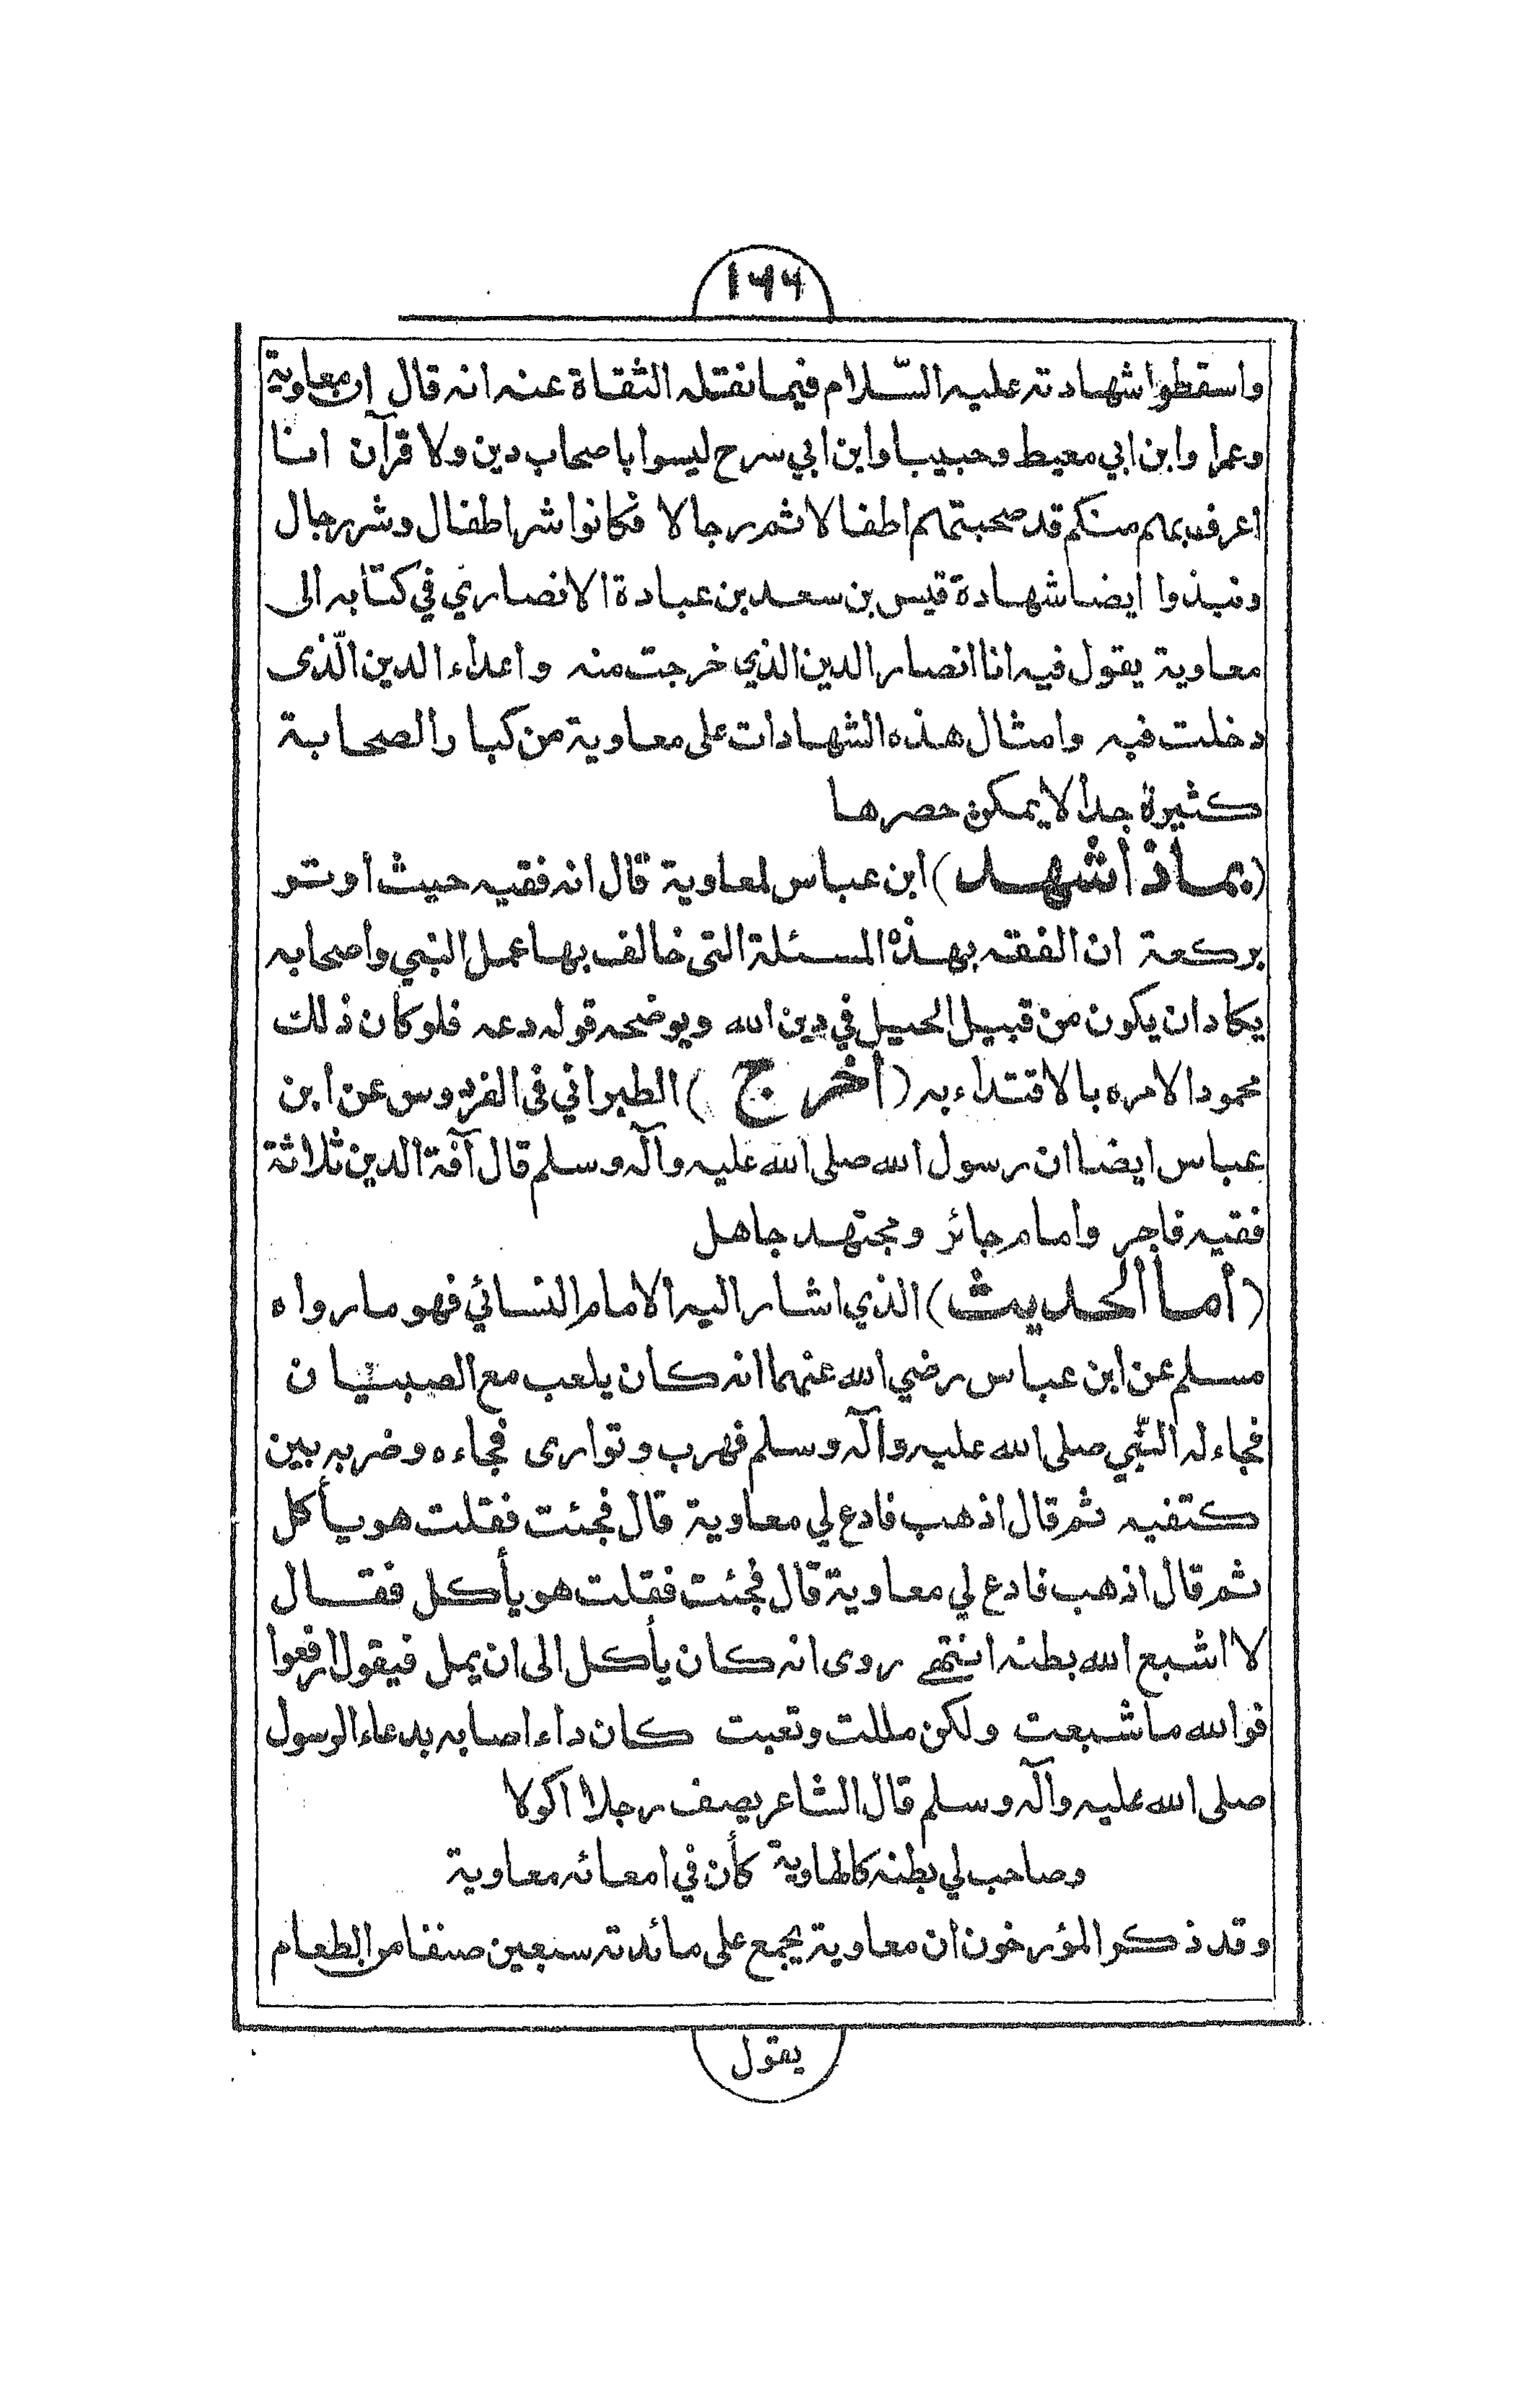 ١٦٦
واسقطوا شهادته عليه السّلام فيما نقله الثقاة عنه انه قال ان معاوية
وعمرا وابن ابي معيط وحبيبا وابن ابي سرح ليسوا باصحاب دين ولا قرآن انا
اعرف بهم منكم قد صحبتهم اطفالا ثم رجالا فكانوا شر اطفال وشر رجال
ونبذوا ايضا شهادة قيس بن سعد بن عبادة الانصاري في كتابه الى
معاوية يقول فيه انا انصار الدين الذي خرجت منه واعداء الدين الّذى
دخلت فيه وامثال هذه الشهادات على معاوية من كبار الصحابة
كثيرة جدا لا يمكن حصرها
(بماذا شهد) ابن عباس لمعاوية قال انه فقيه حيث اوتر
بركعة ان الفقه بهذه المسئلة التى خالف بها عمل النبي واصحابه
يكاد ان يكون من قبيل الحيل في دين الله ويوضحه قوله دعه فلو كان ذلك
محمودا لامره بالاقتداء به (اخرج) الطبراني فى الفردوس عن ابن
عباس ايضا ان رسول الله صلى الله عليه وآله وسلم قال آفة الدين ثلاثة
فقيه فاجر وامام جائر ومجتهد جاهل
(اما الحديث) الذي اشار اليه الامام النسائي فهو ما رواه
مسلم عن ابن عباس رضي الله عنهما انه كان يلعب مع الصبيان
فجاء له النّبي صلى الله عليه وآله وسلم فهرب وتوارى فجاءه وضربه بين
كتفيه ثم قال اذهب فادع لي معاوية قال فجئت فقلت هو يأكل
ثم قال اذهب فادع لي معاوية قال فجئت فقلت هو يأكل فقال
لا اشبع الله بطنه انتهى روى انه كان يأكل الى ان يمل فيقول ارفعوا
فوالله ما شبعت ولكن مللت وتعبت كان داء اصابه بدعاء الرسول
صلى الله عليه وآله وسلم قال الشاعر يصف رجلا اكولا
وصاحب لي بطنه كالهاوية كأن في امعائه معاوية
وقد ذكر المؤرخون ان معاوية يجمع على مائدته سبعين صنفا من الطعام
يقول